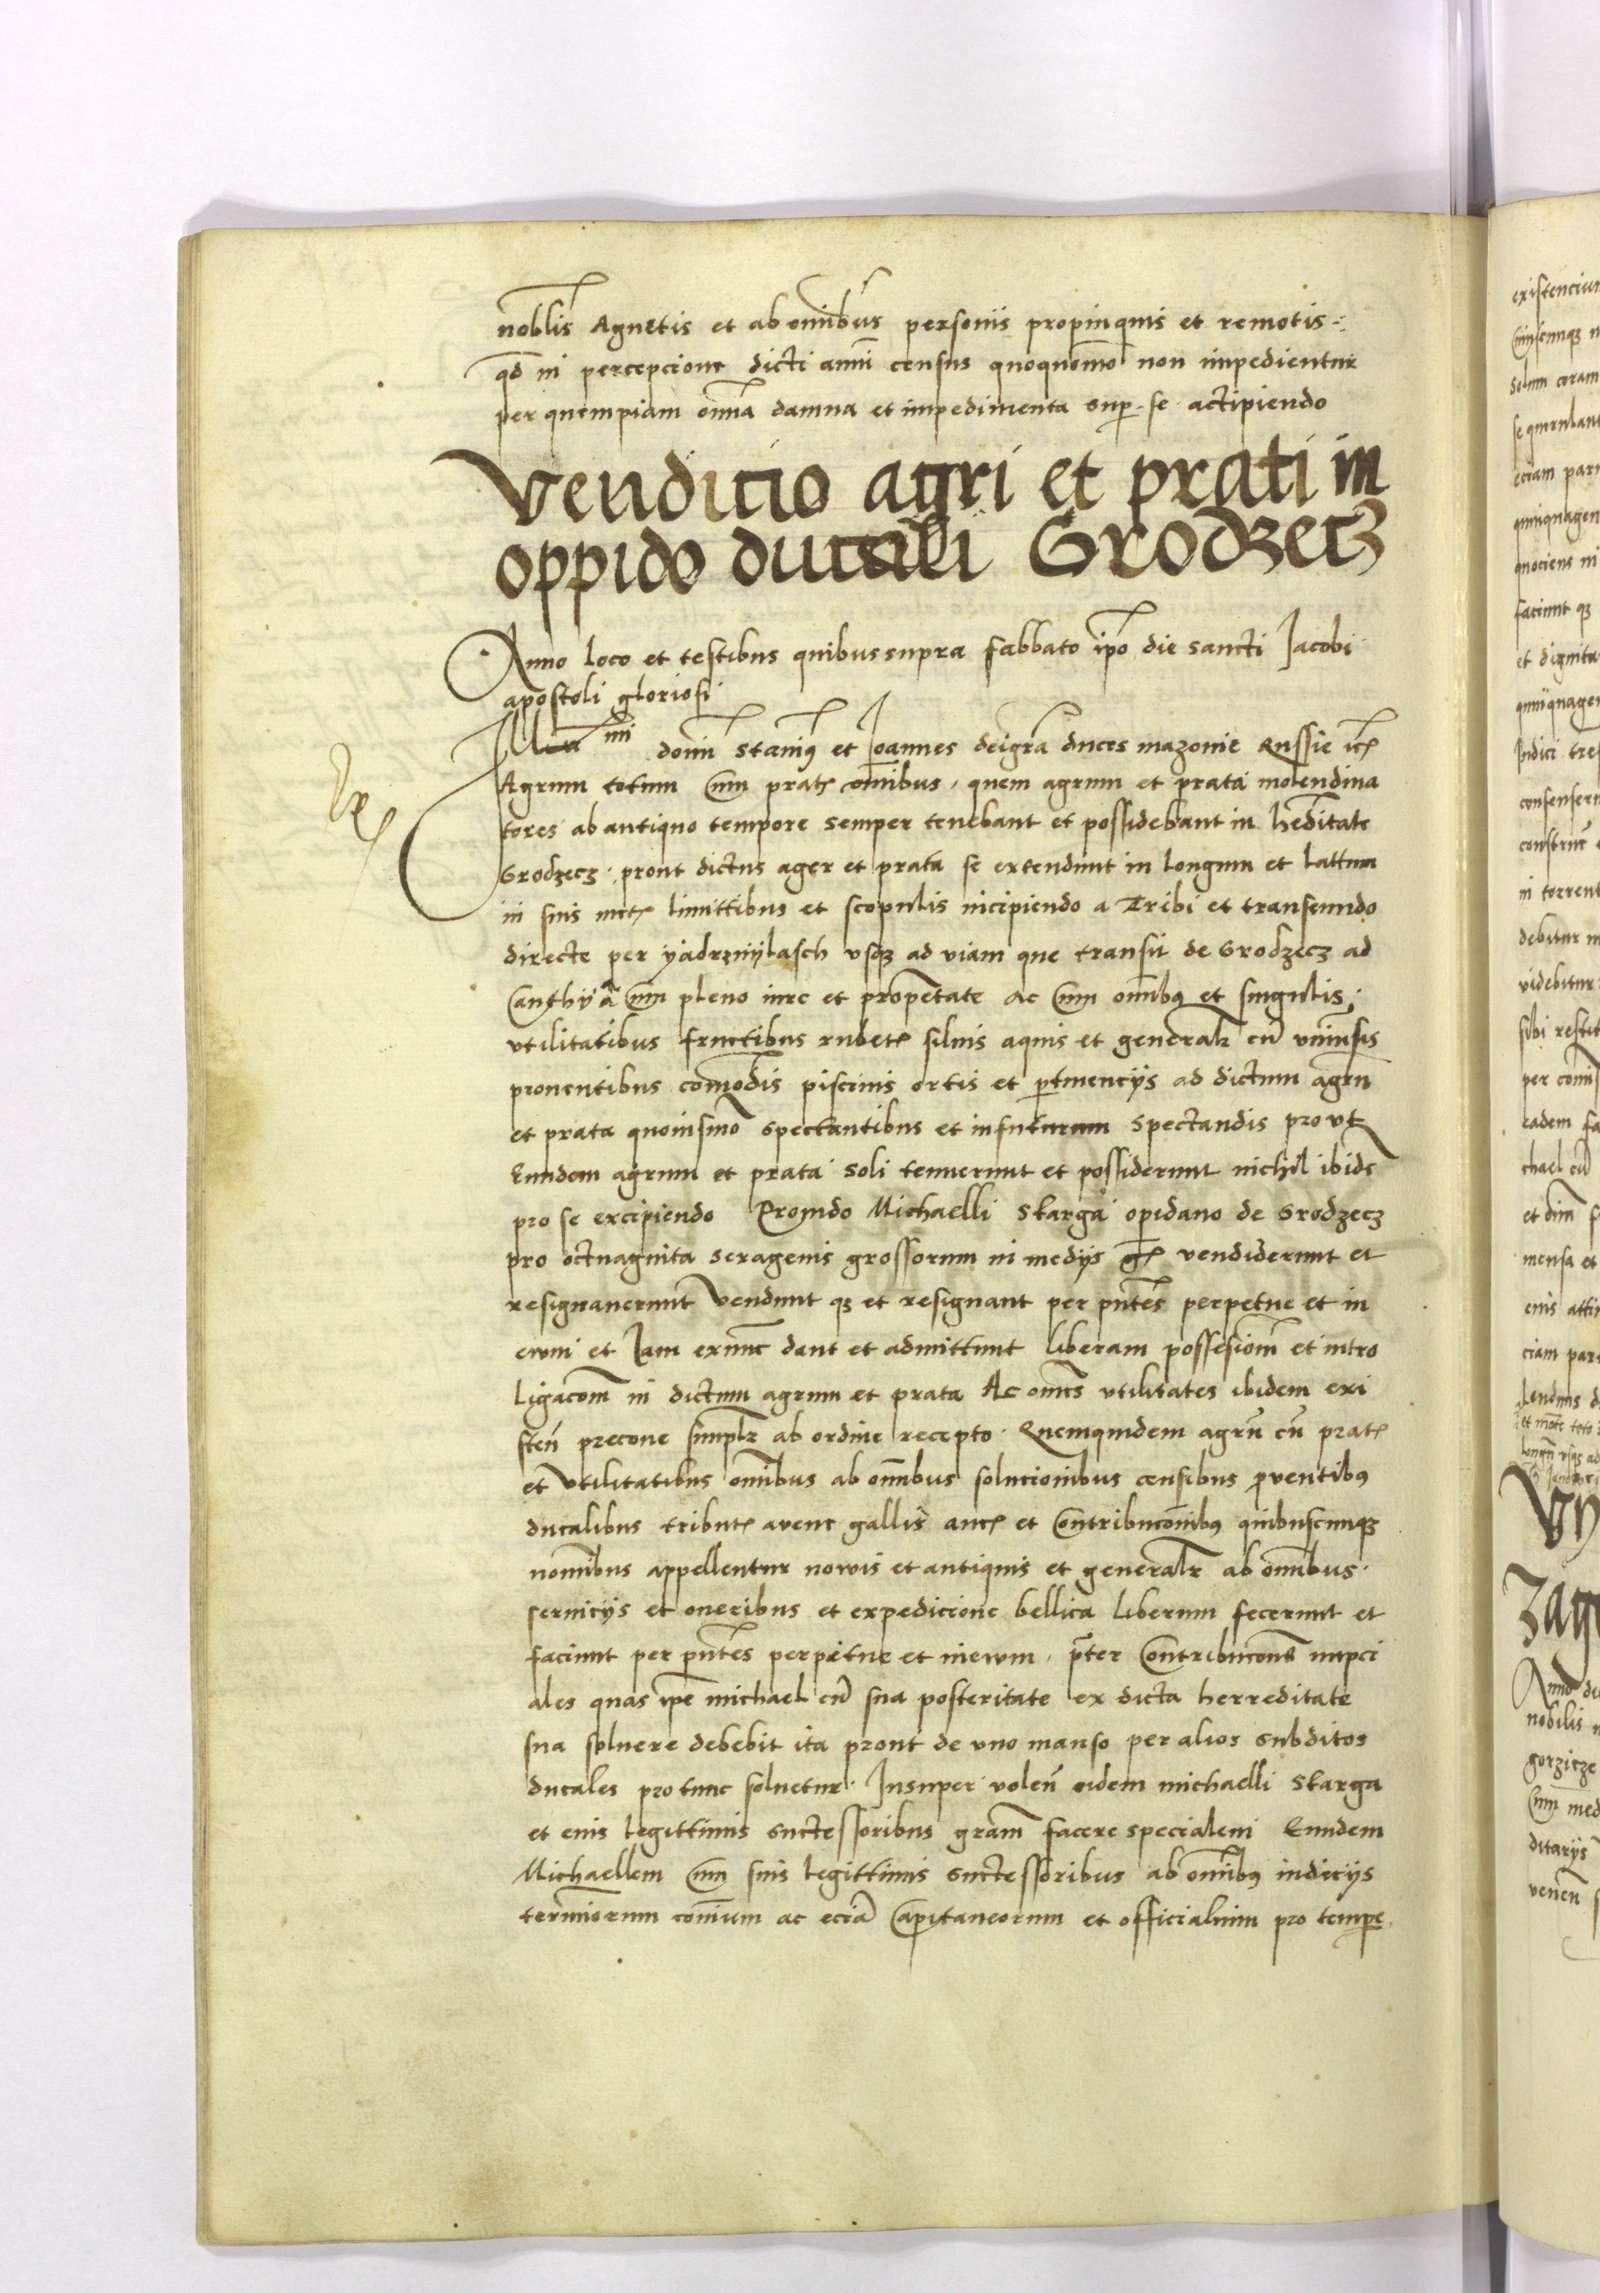 noblis Agnetis et ab omnibus personis propinquis et remotis
qd in percepcione dicti anni census quoquomo non impedientur
per quempiam omnia damna et impedimenta sup se actipiendo
Vendicio agri et prati in
oppido ducali Grodzecz
Anno loco et testibus quibus supra sabbato ipo die sancti Jacobi
apostoli gloriosi
domi Stanis et Joannes dei gra duces mazouie Russie
Agrum totum cum prat omnibus quem agrum et prata molendina
tores ab antiquo tempore semper tenebant et possidebant in heditate
Grodzecz prout dictus ager et prata se extendunt in longum et lattum
in suis limittibus et scopulis incipiendo a Tribi et transeundo
directe per vsqz ad viam que transit de Grodzecz ad
cum pleno iure et propetate ac cum omnibus et singulis
vtilitatibus fructibus rubet siluis aquis et generalr cu vniuersis
prouentibus comodis piscinis ortis et ptinencijs ad dictum agru
et prata quouismo spectantibus et infuturum spectandis provt
Eundem agrum et prata soli tenuerunt et possiderunt nichil ibide
pro se excipiendo Prouido Michaelli Skarga opidano de Grodzecz
pro octuaginta sexagenis grossorum in medijs g vendiderunt et
resignauerunt Vendunt qz et resignant per pntes perpetue et in
ewm et Jam exnunc dant et admittunt liberam possesiom et intro
ligacom in dictum agrum et prata Ac omes vtilitates ibidem exi
sten precone simplr ab ordine recepto Quemquidem agru cu prat
et vtilitatibus omibus ab omnibus solucionibus censibus prouentibus
ducalibus tribut auene gallis auc et Contribuconibus quibuscumqz
nominibus appellentur nowis et antiquis et generalr ab omnibus
seruicijs et oneribus et expedicione bellica liberum fecerunt et
faciunt per pntes perpetue et inewm pter Contribucones nupci
ales quas ipe michael cu sua posteritate ex dicta herreditate
sua soluere debebit ita prout de vno manso per alios subditos
ducales pro tunc soluetur Insuper volen eidem michaelli Skarga
et eius legittimis suctessoribus gram facere specialem Eundem
Michaellem cum suis legittimis suctessoribus ab omnibus iudicijs
terminorum comium ac ecia Capitaneorum et officialium pro tempe